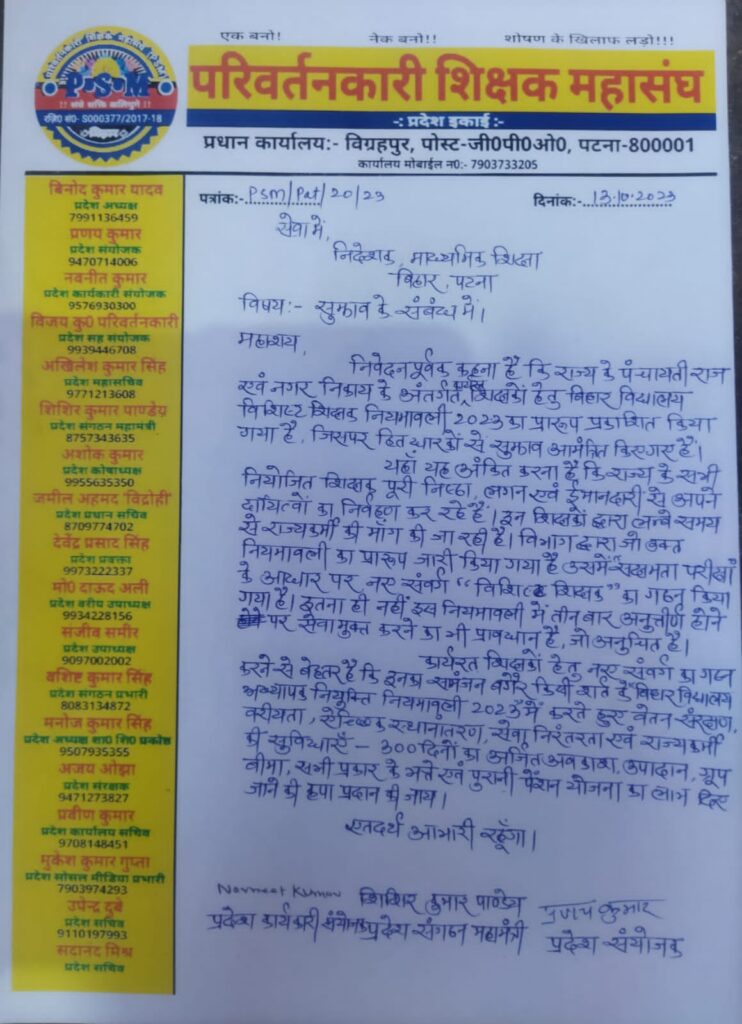 एक बनो! नेक बनो!! शोषण के खिलाफ लड़ो!!!
परिवर्तनकारी शिक्षक महासंघ (PSM)
P.S.M
!! संघे शक्ति कलियुगे !!
रजि0 सं0- S000377/2017-18
बिहार
परिवर्तनकारी शिक्षक महासंघ
-: प्रदेश इकाई :-
प्रधान कार्यालय:- विग्रहपुर, पोस्ट-जी0पी0ओ0, पटना-800001
कार्यालय मोबाईल न0:- 7903733205
बिनोद कुमार यादव
प्रदेश अध्यक्ष
7991136459
प्रणय कुमार
प्रदेश संयोजक
9470714006
नवनीत कुमार
प्रदेश कार्यकारी संयोजक
9576930300
विजय कु0 परिवर्तनकारी
प्रदेश सह संयोजक
9939446708
अखिलेश कुमार सिंह
प्रदेश महासचिव
9771213608
शिशिर कुमार पाण्डेय
प्रदेश संगठन महामंत्री
8757343635
अशोक कुमार
प्रदेश कोषाध्यक्ष
9955635350
जमील अहमद 'विद्रोही'
प्रदेश प्रधान सचिव
8709774702
देवेंद्र प्रसाद सिंह
प्रदेश प्रवक्ता
9973222337
मो0 दाऊद अली
प्रदेश वरीय उपाध्यक्ष
9934228156
संजीव समीर
प्रदेश उपाध्यक्ष
9097002002
बशिष्ट कुमार सिंह
प्रदेश संगठन प्रभारी
8083134872
मनोज कुमार सिंह
प्रदेश अध्यक्ष शा0 शि0 प्रकोष्ठ
9507935355
अजय ओझा
प्रदेश संरक्षक
9471273827
प्रवीण कुमार
प्रदेश कार्यालय सचिव
9708148451
मुकेश कुमार गुप्ता
प्रदेश सोसल मीडिया प्रभारी
7903974293
उपेन्द्र दुबे
प्रदेश सचिव
9110197993
सदानंद मिश्र
प्रदेश सचिव
पत्रांक:- PSM/Pat/20/23 दिनांक:- 13.10.2023
सेवा में,
निदेशक, माध्यमिक शिक्षा
बिहार, पटना
विषय:- सुझाव के संबंध में।
महाशय,
निवेदनपूर्वक कहना है कि राज्य के पंचायती राज
एवं नगर निकाय के अंतर्गत कार्यरत शिक्षकों हेतु बिहार विद्यालय
विशिष्ट शिक्षक नियमावली 2023 का प्रारूप प्रकाशित किया
गया है, जिसपर हितधारकों से सुझाव आमंत्रित किए गए हैं।
यहाँ यह अंकित करना है कि राज्य के सभी
नियोजित शिक्षक पूरी निष्ठा, लगन एवं ईमानदारी से अपने
दायित्वों का निर्वहण कर रहे हैं। इन शिक्षकों द्वारा लम्बे समय
से राज्यकर्मी की माँग की जा रही है। विभाग द्वारा जो उक्त
नियमावली का प्रारूप जारी किया गया है उसमें सक्षमता परीक्षा
के आधार पर नए संवर्ग "विशिष्ट शिक्षक" का गठन किया
गया है। इतना ही नहीं इस नियमावली में तीन बार अनुत्तीर्ण होने
पर सेवामुक्त करने का भी प्रावधान है, जो अनुचित है।
कार्यरत शिक्षकों हेतु नए संवर्ग का गठन
करने से बेहतर है कि इनका समंजन बगैर किसी शर्त के बिहार विद्यालय
अध्यापक नियुक्ति नियमावली 2023 में करते हुए वेतन संरक्षण,
वरीयता, ऐच्छिक स्थानातरण, सेवा निरंतरता एवं राज्यकर्मी
की सुविधाएँ - 300 दिनों का अर्जित अवकाश, उपादान, ग्रूप
बीमा, सभी प्रकार के भत्ते एवं पुरानी पेंशन योजना का लाभ दिए
जाने की कृपा प्रदान की जाय।
एतदर्थ आभारी रहूँगा।
Navneet Kumar शिशिर कुमार पाण्डेय प्रणय कुमार
प्रदेश कार्यकारी संयोजक प्रदेश संगठन महामंत्री प्रदेश संयोजक